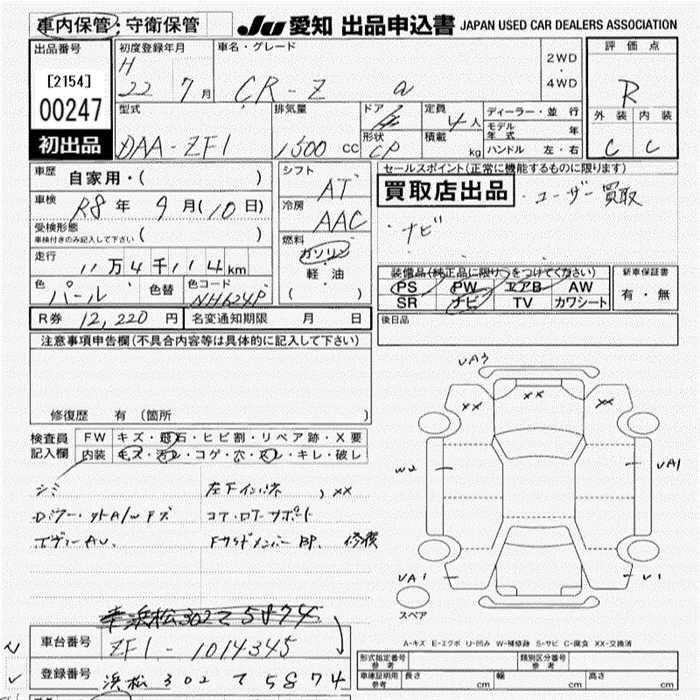 車内保管・守衛保管
JU 愛知 出品申込書 JAPAN USED CAR DEALERS ASSOCIATION
出品番号 初度登録年月 車名・グレード 評価点
[2154] H 22 7月 CR-Z α 2WD・4WD R
00247 型式 排気量 ドア 定員 4人 ディーラー・並行 外装 内装
初出品 DAA-ZF1 1500cc 形状 CP 積載 kg モデル年式 年 ハンドル 左・右 C C
車歴 自家用・( ) シフト AT セールスポイント(正常に機能するものに限ります)
車検 R8年 9月(10日) 冷房 AAC 買取店出品 ・ユーザー買取
受検形態 車検付きのみ記入して下さい ( ) ・ナビ
走行 11万4千114km 燃料 ガソリン・軽油・( )
装備品(純正品に限り○をつけてください) 新車保証書
PS PW エアB AW 有・無
色 パール 色替 色コード NH624P SR ナビ TV カワシート
R券 12,220円 名変通知期限 月 日 後日品
注意事項申告欄(不具合内容等は具体的に記入して下さい)
修復歴 有 (箇所 )
検査員記入欄 FW キズ・飛石・ヒビ割・リペア跡・X要
内装 キズ・汚レ・コゲ・穴・スレ・キレ・破レ
UA3
XX XX XX
W2 UA1
UA1 U1
スペア
シミ 左下インパネ XX
コア・ロアーサポート
ボディーAU. 修復
車浜松302て5874
車台番号 ZF1-1014345
登録番号 浜松302て5874
A-キズ E-エクボ U-凹み W-補修跡 S-サビ C-腐食 XX-交換済
形式指定番号 参考 類別区分番号 参考
車庫証明用 参考 長さ cm 幅 cm 高さ cm